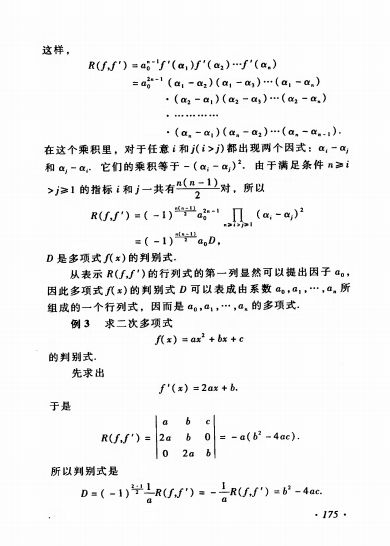 这样,
R(f,f′) = a₀ⁿ⁻¹f′(α₁)f′(α₂)⋯f′(αₙ)
= a₀²ⁿ⁻¹(α₁ − α₂)(α₁ − α₃)⋯(α₁ − αₙ)
·(α₂ − α₁)(α₂ − α₃)⋯(α₂ − αₙ)
·⋯⋯⋯⋯
·(αₙ − α₁)(αₙ − α₂)⋯(αₙ − αₙ₋₁).
在这个乘积里，对于任意 i 和 j(i > j)都出现两个因式：αᵢ − αⱼ
和 αⱼ − αᵢ. 它们的乘积等于 −(αᵢ − αⱼ)². 由于满足条件 n≥i
>j≥1 的指标 i 和 j 一共有 n(n − 1)/2 对，所以
R(f,f′) = (−1)^(n(n−1)/2) a₀²ⁿ⁻¹ ∏_(n≥i>j≥1) (αᵢ − αⱼ)²
= (−1)^(n(n−1)/2) a₀D,
D 是多项式 f(x) 的判别式.
从表示 R(f,f′) 的行列式的第一列显然可以提出因子 a₀,
因此多项式 f(x) 的判别式 D 可以表成由系数 a₀,a₁,⋯,aₙ 所
组成的一个行列式，因而是 a₀,a₁,⋯,aₙ 的多项式.
例 3 求二次多项式
f(x) = ax² + bx + c
的判别式.
先求出
f′(x) = 2ax + b.
于是
a b c
R(f,f′) = 2a b 0 = −a(b² − 4ac).
0 2a b
所以判别式是
D = (−1)^(2·1/2) 1/a R(f,f′) = − 1/a R(f,f′) = b² − 4ac.
·175·